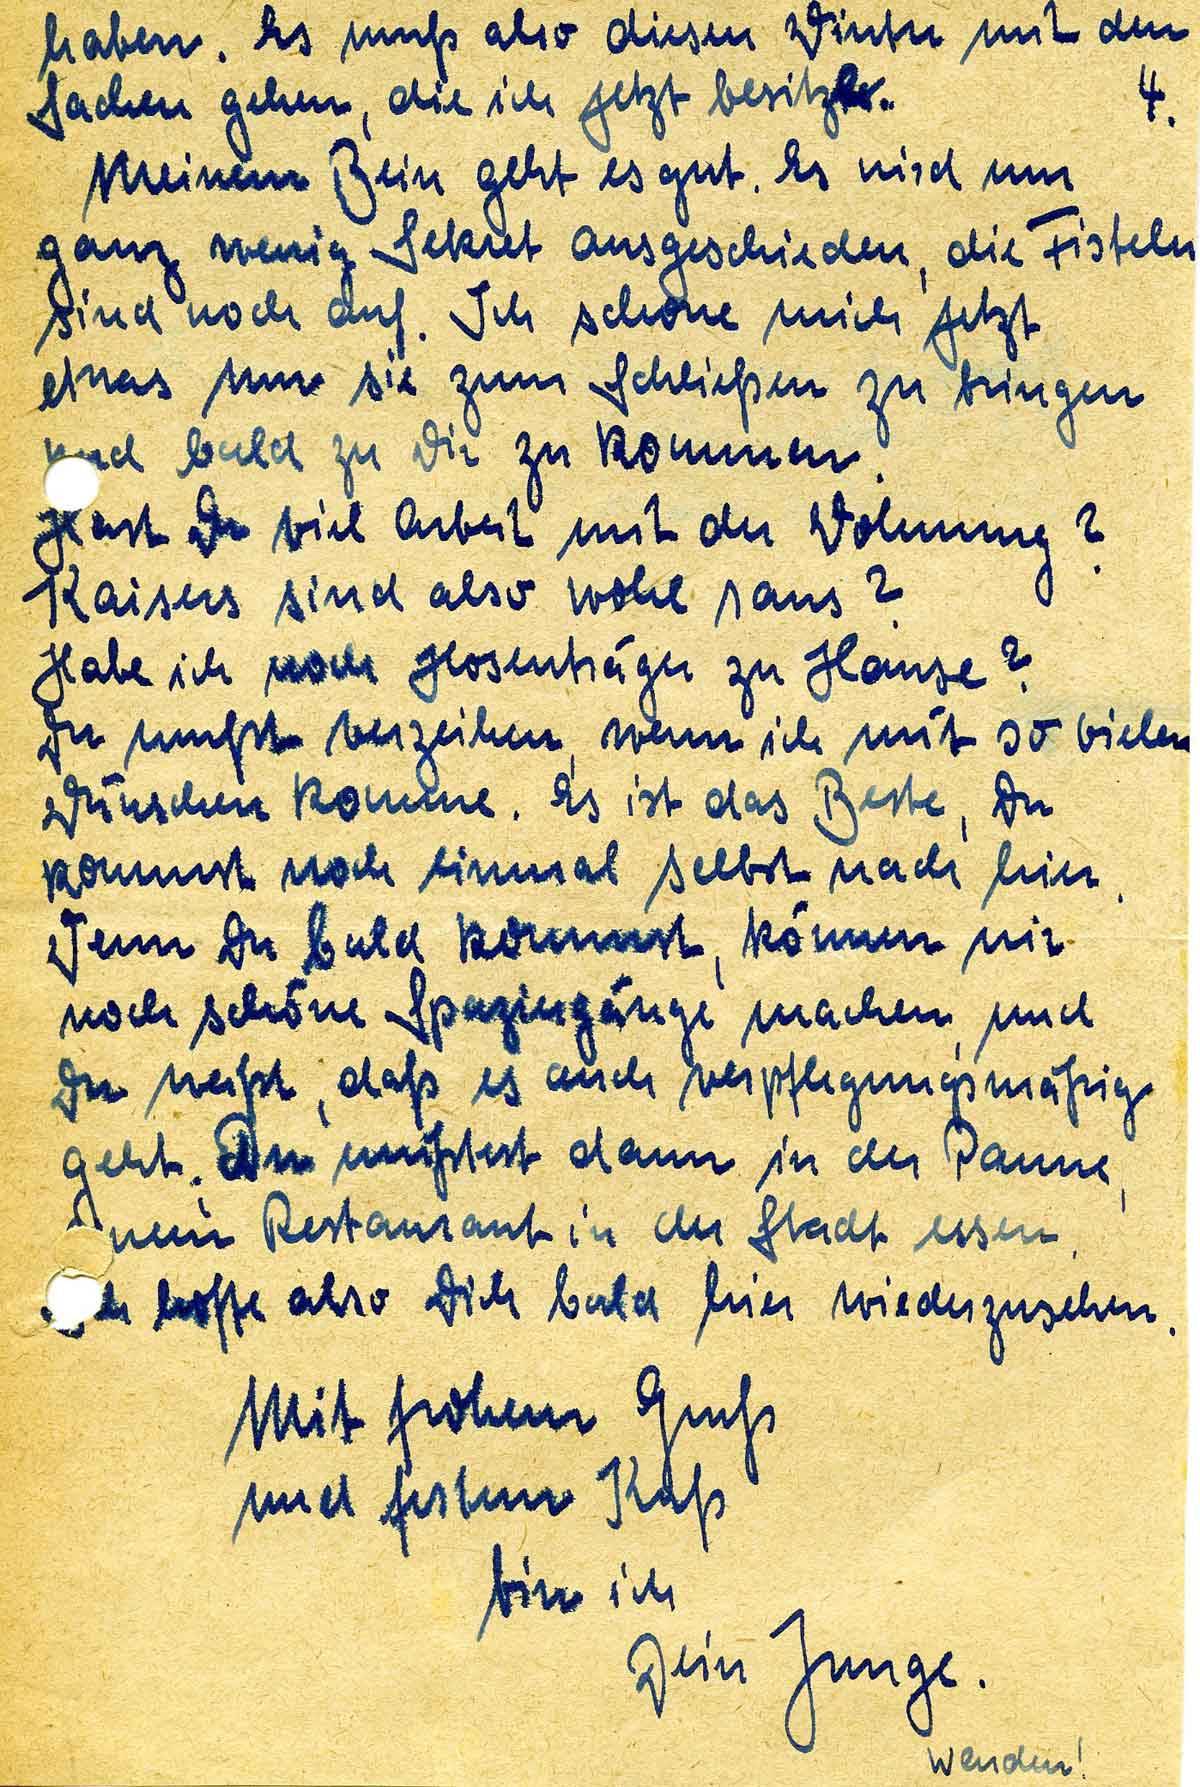 haben. Es muß also diesen Winter mit den
Sachen gehen, die ich jetzt besitze.
4.
Meinem Bein geht es gut. Es wird nur
ganz wenig Sekret ausgeschieden, die Fisteln
sind noch auf. Ich schone mich jetzt
etwas um sie zum Schließen zu bringen
und bald zu Dir zu kommen.
Hast Du viel Arbeit mit der Wohnung?
Kaisers sind also wohl raus?
Habe ich noch Hosenträger zu Hause?
Du mußt verzeihen, wenn ich mit so vielen
Wünschen komme. Es ist das Beste, Du
kommst noch einmal selbst nach hier.
Wenn Du bald kommst, können wir
noch schöne Spaziergänge machen, und
Du weißt, daß es auch verpflegungsmäßig
geht. Du müßtest dann in der Panne,
Restaurant in der Stadt essen.
Ich hoffe also Dich bald hier wiederzusehen.
Mit frohem Gruß
und festem Kuß
bin ich
Dein Junge.
Wenden!